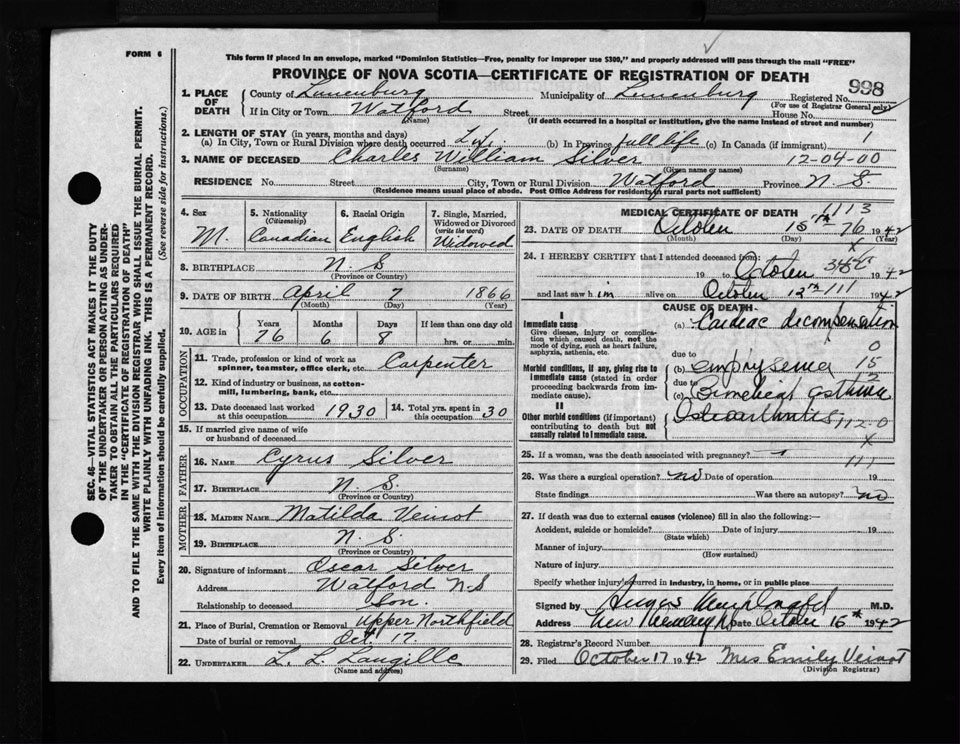 FORM 6
This form if placed in an envelope, marked "Dominion Statistics—Free, penalty for improper use $300," and properly addressed will pass through the mail "FREE"
PROVINCE OF NOVA SCOTIA—CERTIFICATE OF REGISTRATION OF DEATH
998
1. PLACE OF DEATH
County of Lunenburg Municipality of Lunenburg Registered No.
(For use of Registrar General only)
If in City or Town Watford Street House No.
(Name) (If death occurred in a hospital or institution, give the name instead of street and number)
2. LENGTH OF STAY (in years, months and days)
(a) In City, Town or Rural Division where death occurred (b) In Province full life (c) In Canada (if immigrant) 1
3. NAME OF DECEASED Charles William Silver 12-04-00
(Surname) (Given name or names)
RESIDENCE No. Street City, Town or Rural Division Watford Province N. S.
(Residence means usual place of abode. Post Office Address for residents in rural parts not sufficient)
4. Sex
M.
5. Nationality
(Citizenship)
Canadian
6. Racial Origin
English
7. Single, Married, Widowed or Divorced
(write the word)
Widowed
8. BIRTHPLACE N S
(Province or Country)
9. DATE OF BIRTH April 7 1866
(Month) (Day) (Year)
10. AGE in
Years Months Days If less than one day old
76 6 8 hrs. or min.
OCCUPATION
11. Trade, profession or kind of work as spinner, teamster, office clerk, etc. Carpenter
12. Kind of industry or business, as cotton-mill, lumbering, bank, etc.
13. Date deceased last worked at this occupation 1930
14. Total yrs. spent in this occupation 30
15. If married give name of wife or husband of deceased
FATHER
16. NAME Cyrus Silver
17. BIRTHPLACE N. S.
(Province or Country)
MOTHER
18. MAIDEN NAME Matilda Veinot
19. BIRTHPLACE N. S.
(Province or Country)
20. Signature of informant Oscar Silver
Address Watford N S
Relationship to deceased Son.
21. Place of Burial, Cremation or Removal Upper Northfield
Date of burial or removal Oct. 17
22. UNDERTAKER L. L. Langille
(Name and address)
MEDICAL CERTIFICATE OF DEATH
1113
23. DATE OF DEATH October 15th 76 1942
(Month) (Day) (Year)
24. I HEREBY CERTIFY that I attended deceased from:
19 to October 1942
and last saw him alive on October 12th 111 1942
CAUSE OF DEATH
I
Immediate cause
Give disease, injury or complication which caused death, not the mode of dying, such as heart failure, asphyxia, asthenia, etc.
(a) Cardiac decompensation
due to
Morbid conditions, if any, giving rise to immediate cause (stated in order proceeding backwards from immediate cause).
(b) emphysema
due to
(c) Bronchial asthma
II
Other morbid conditions (if important) contributing to death but not causally related to immediate cause.
Osteoarthritis 112.0
25. If a woman, was the death associated with pregnancy?
111
26. Was there a surgical operation? no Date of operation 19
State findings Was there an autopsy? no
27. If death was due to external causes (violence) fill in also the following:—
Accident, suicide or homicide? Date of injury 19
(State which)
Manner of injury
(How sustained)
Nature of injury
Specify whether injury occurred in industry, in home, or in public place
Signed by M.D.
Address Date October 16th 1942
28. Registrar's Record Number
29. Filed October 17 1942 Mrs Emily Veinot
(Division Registrar)
SEC. 46—VITAL STATISTICS ACT MAKES IT THE DUTY
OF THE UNDERTAKER OR PERSON ACTING AS UNDER-
TAKER TO OBTAIN ALL THE PARTICULARS REQUIRED
IN THE "CERTIFICATE OF REGISTRATION OF DEATH"
AND TO FILE THE SAME WITH THE DIVISION REGISTRAR WHO SHALL ISSUE THE BURIAL PERMIT.
WRITE PLAINLY WITH UNFADING INK. THIS IS A PERMANENT RECORD.
Every item of information should be carefully supplied. (See reverse side for instructions.)